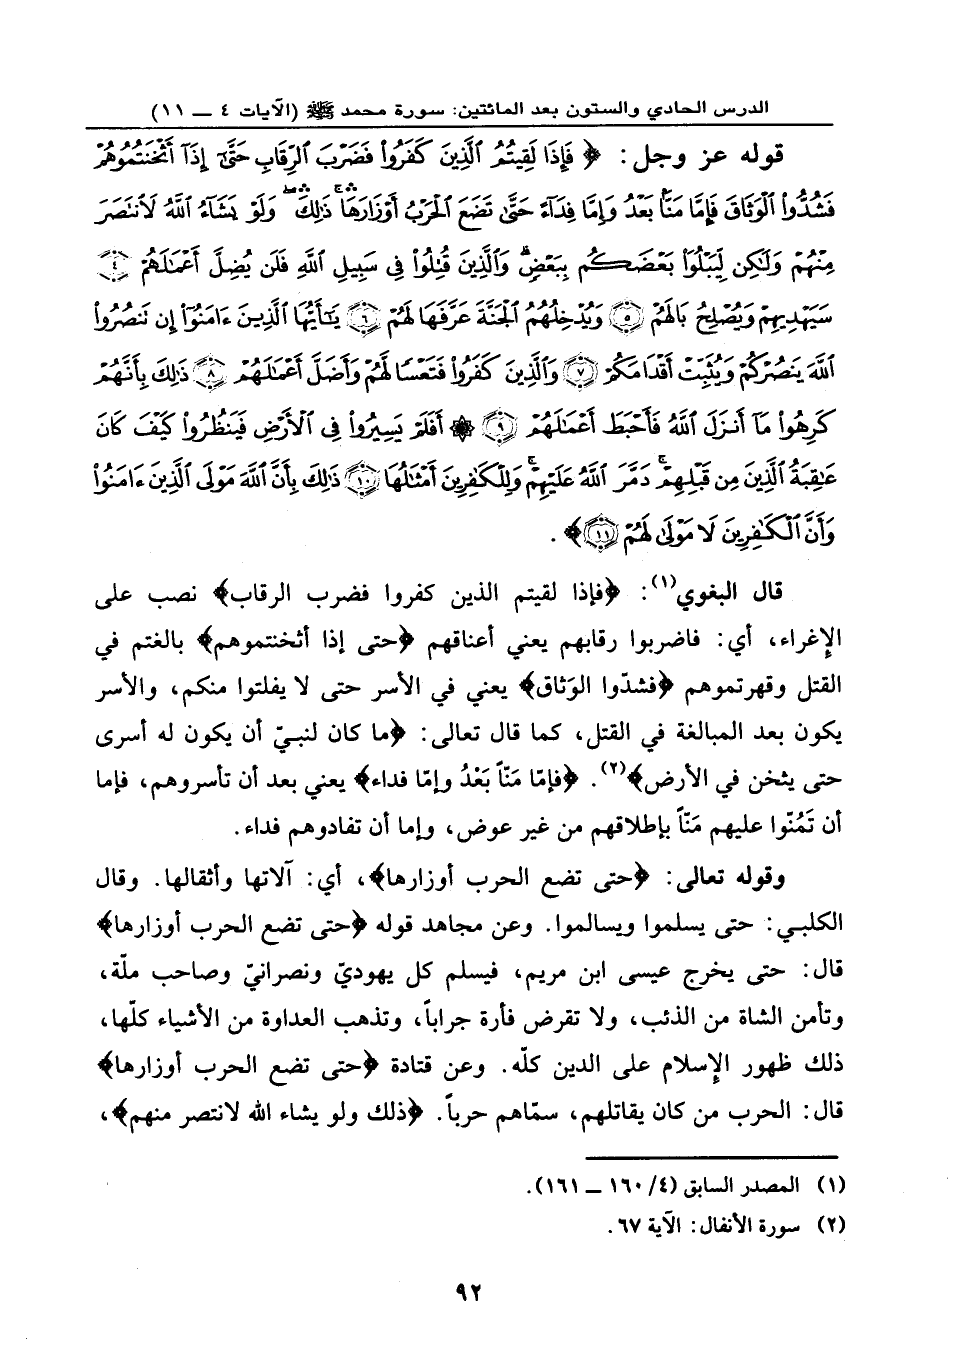 الدرس الحادي والستون بعد المائتين: سورة محمد ﷺ (الآيات ٤ ــ ١١)
قوله عز وجل: ﴿ فَإِذَا لَقِيتُمُ الَّذِينَ كَفَرُوا فَضَرْبَ الرِّقَابِ حَتَّىٰ إِذَا أَثْخَنتُمُوهُمْ
فَشُدُّوا الْوَثَاقَ فَإِمَّا مَنًّا بَعْدُ وَإِمَّا فِدَاءً حَتَّىٰ تَضَعَ الْحَرْبُ أَوْزَارَهَا ۚ ذَٰلِكَ ۖ وَلَوْ يَشَاءُ اللَّهُ لَانتَصَرَ
مِنْهُمْ وَلَٰكِن لِّيَبْلُوَا بَعْضَكُم بِبَعْضٍ ۗ وَالَّذِينَ قُتِلُوا فِي سَبِيلِ اللَّهِ فَلَن يُضِلَّ أَعْمَالَهُمْ ﴿٤﴾
سَيَهْدِيهِمْ وَيُصْلِحُ بَالَهُمْ ﴿٥﴾ وَيُدْخِلُهُمُ الْجَنَّةَ عَرَّفَهَا لَهُمْ ﴿٦﴾ يَا أَيُّهَا الَّذِينَ ءَامَنُوا إِن تَنصُرُوا
اللَّهَ يَنصُرْكُمْ وَيُثَبِّتْ أَقْدَامَكُمْ ﴿٧﴾ وَالَّذِينَ كَفَرُوا فَتَعْسًا لَّهُمْ وَأَضَلَّ أَعْمَالَهُمْ ﴿٨﴾ ذَٰلِكَ بِأَنَّهُمْ
كَرِهُوا مَا أَنزَلَ اللَّهُ فَأَحْبَطَ أَعْمَالَهُمْ ﴿٩﴾ ۞ أَفَلَمْ يَسِيرُوا فِي الْأَرْضِ فَيَنظُرُوا كَيْفَ كَانَ
عَاقِبَةُ الَّذِينَ مِن قَبْلِهِمْ ۚ دَمَّرَ اللَّهُ عَلَيْهِمْ ۖ وَلِلْكَافِرِينَ أَمْثَالُهَا ﴿١٠﴾ ذَٰلِكَ بِأَنَّ اللَّهَ مَوْلَى الَّذِينَ ءَامَنُوا
وَأَنَّ الْكَافِرِينَ لَا مَوْلَىٰ لَهُمْ ﴿١١﴾﴾ .
قال البغوي(١): ﴿فإذا لقيتم الذين كفروا فضرب الرقاب﴾ نصب على
الإغراء، أي: فاضربوا رقابهم يعني أعناقهم ﴿حتى إذا أثخنتموهم﴾ بالغتم في
القتل وقهرتموهم ﴿فشدّوا الوَثاق﴾ يعني في الأسر حتى لا يفلتوا منكم، والأسر
يكون بعد المبالغة في القتل، كما قال تعالى: ﴿ما كان لنبيّ أن يكون له أسرى
حتى يثخن في الأرض﴾(٢). ﴿فإمّا مَنّاً بَعْدُ وإمّا فداء﴾ يعني بعد أن تأسروهم، فإما
أن تَمُنّوا عليهم مَنّاً بإطلاقهم من غير عوض، وإما أن تفادوهم فداء.
وقوله تعالى: ﴿حتى تضع الحرب أوزارها﴾، أي: آلاتها وأثقالها. وقال
الكلبي: حتى يسلموا ويسالموا. وعن مجاهد قوله ﴿حتى تضع الحرب أوزارها﴾
قال: حتى يخرج عيسى ابن مريم، فيسلم كل يهوديّ ونصرانيّ وصاحب ملّة،
وتأمن الشاة من الذئب، ولا تقرض فأرة جراباً، وتذهب العداوة من الأشياء كلّها،
ذلك ظهور الإسلام على الدين كلّه. وعن قتادة ﴿حتى تضع الحرب أوزارها﴾
قال: الحرب من كان يقاتلهم، سمّاهم حرباً. ﴿ذلك ولو يشاء الله لانتصر منهم﴾،
(١) المصدر السابق (٤/ ١٦٠ ــ ١٦١).
(٢) سورة الأنفال: الآية ٦٧.
٩٢